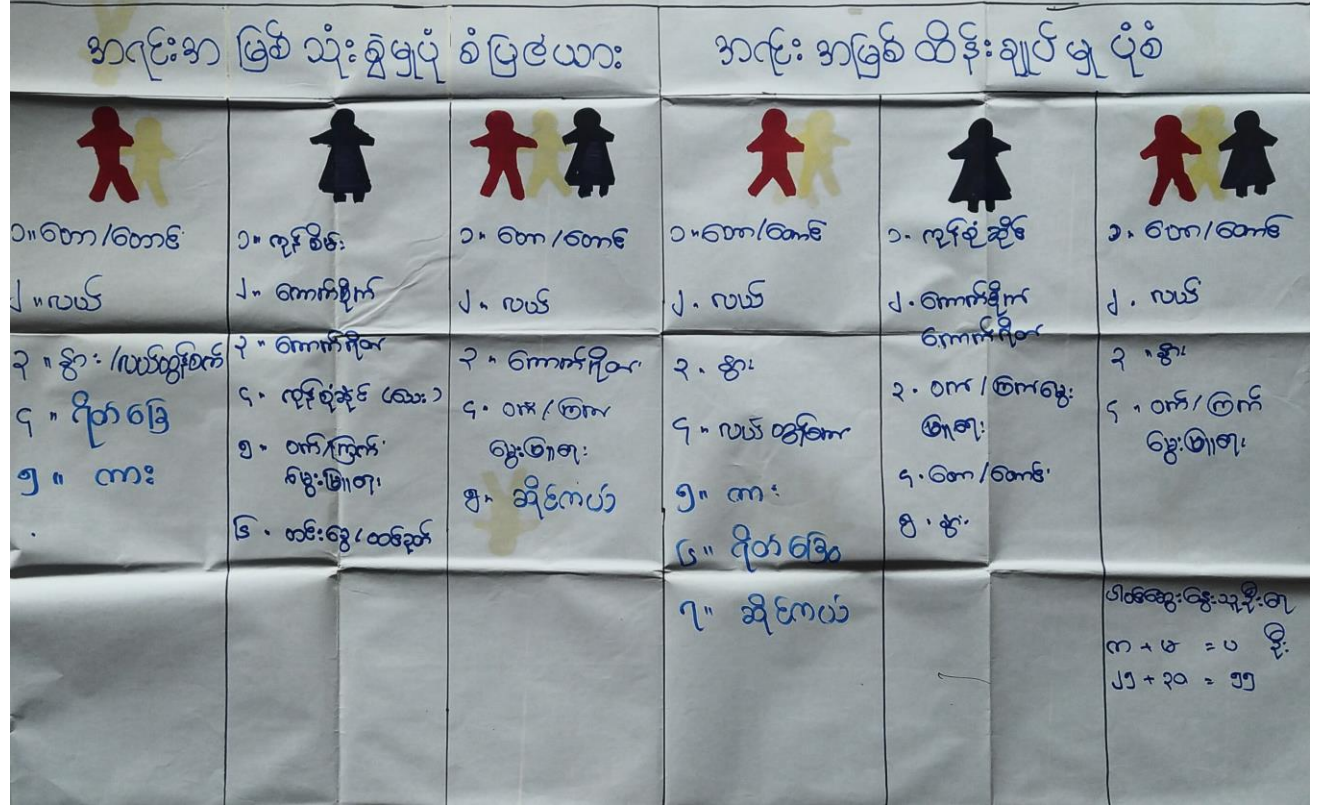 အရင်းအမြစ် သုံးစွဲမှုပုံစံပြဇယား
အရင်းအမြစ်ထိန်းချုပ်မှု ပုံစံ
၁။ တော/တောင်
၂။ လယ်
၃။ နွား/လယ်ထွန်စက်
၄။ ဂိုတာခြေ
၅။ ကား
၁။ ကုန်စိမ်း
၂။ ကောက်စိုက်
၃။ ကောက်ရိတ်
၄။ ကုန်စုံဆိုင် (သေး)
၅။ ဝက်/ကြက်
မွေးမြူရေး
၆။ ထင်းခွေ/ထင်းခုတ်
၁။ တော/တောင်
၂။ လယ်
၃။ ကောက်ရိတ်
၄။ ဝက်/ကြက်
မွေးမြူရေး
၅။ ဆိုင်ကယ်
၁။ တော/တောင်
၂။ လယ်
၃။ နွား
၄။ လယ်ထွန်စက်
၅။ ကား
၆။
၇။ ဆိုင်ကယ်
၁။ ကုန်စုံဆိုင်
၂။ ကောက်စိုက်
ကောက်ရိတ်
၃။ ဝက်/ကြက်မွေး
မြူရေး
၄။ တော/တောင်
၅။ နွား
၁။ တော/တောင်
၂။ လယ်
၃။ နွား
၄။ ဝက်/ကြက်
မွေးမြူရေး
ပါဝင်ဆွေးနွေးသူဦးရေ
က + မ = ပ ဦး
၂၅ + ၃၀ = ၅၅